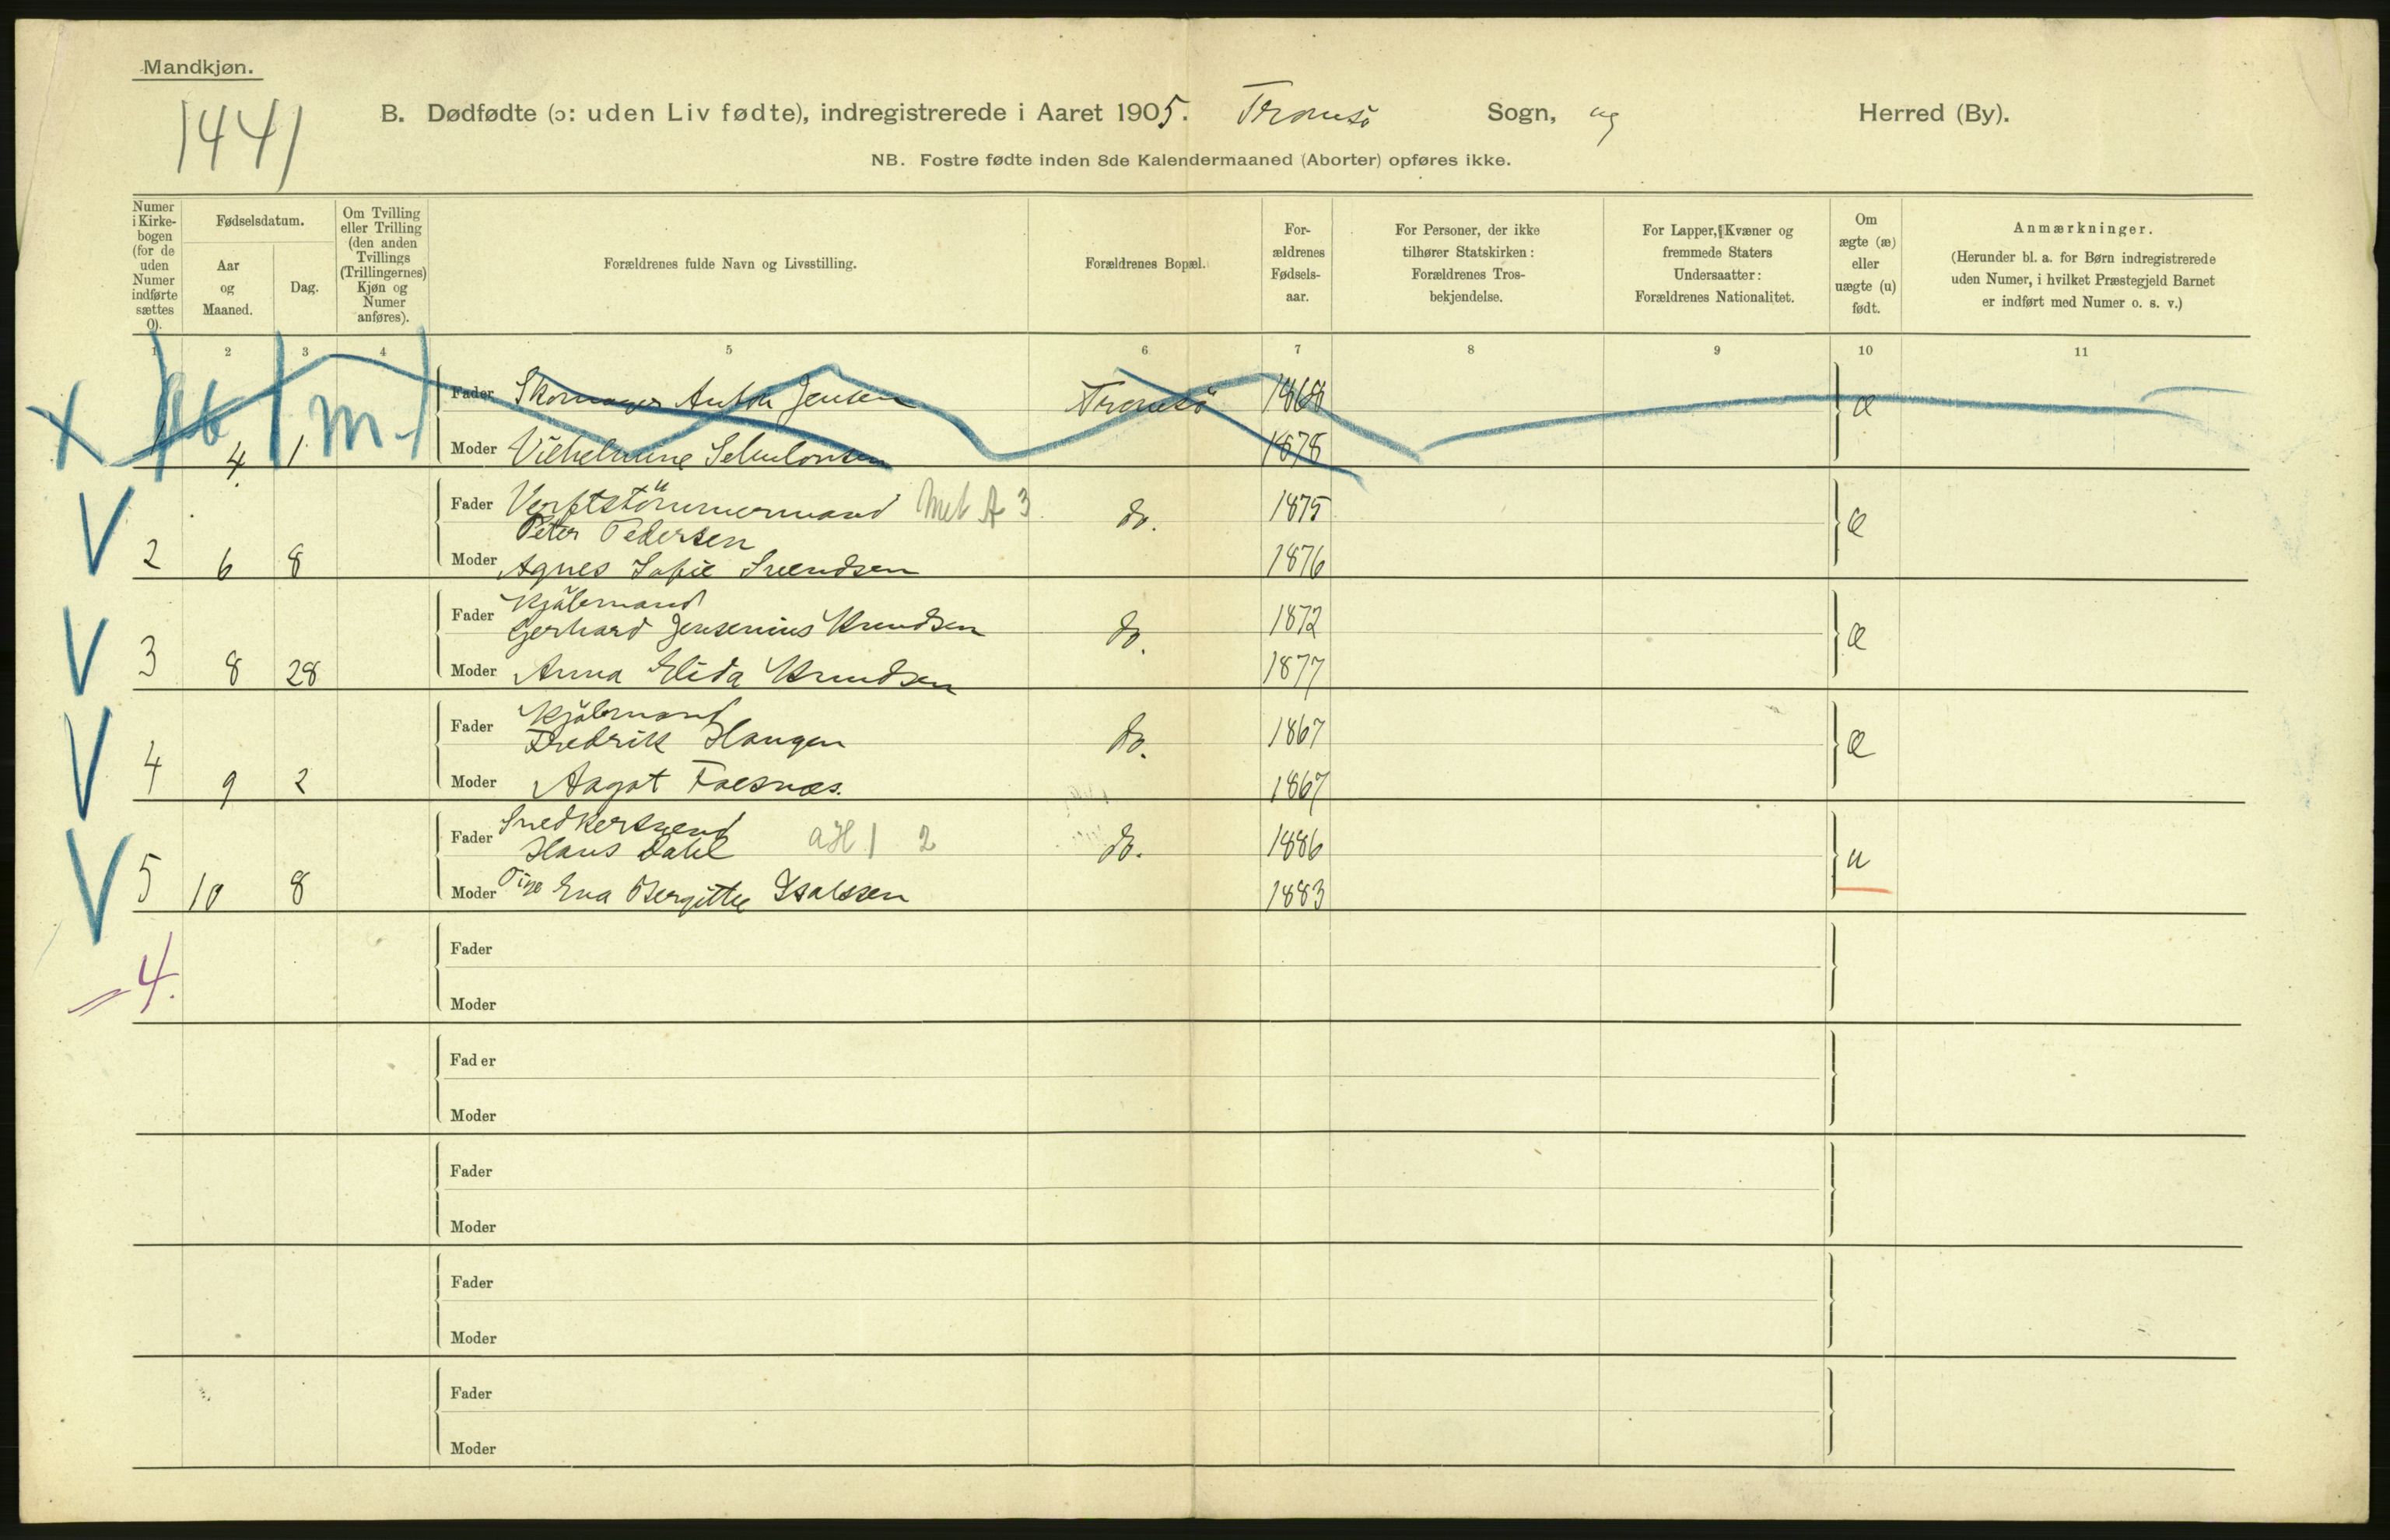 Mandkjøn.
1441
B. Dødfødte (ɔ: uden Liv fødte), indregistrerede i Aaret 1905. Tromsö Sogn, og Herred (By).
NB. Fostre fødte inden 8de Kalendermaaned (Aborter) opføres ikke.
Numer i Kirke-bogen (for de uden Numer indførte sættes 0).
Fødselsdatum.
Aar og Maaned.
Dag.
Om Tvilling eller Trilling (den anden Tvillings (Trillingernes) Kjøn og Numer anføres).
Forældrenes fulde Navn og Livsstilling.
Forældrenes Bopæl.
For-ældrenes Fødsels-aar.
For Personer, der ikke tilhører Statskirken: Forældrenes Tros-bekjendelse.
For Lapper, Kvæner og fremmede Staters Undersaatter: Forældrenes Nationalitet.
Om ægte (æ) eller uægte (u) født.
Anmærkninger.
(Herunder bl. a. for Børn indregistrerede uden Numer, i hvilket Præstegjeld Barnet er indført med Numer o. s. v.)
1 2 3 4 5 6 7 8 9 10 11
Fader Skomager Anton Jensen Tromsö 1868 æ
X 1 4 1 Moder Vilhelmine 1878
Fader Verftstömmermand A 3 do. 1875 æ
Peter Pedersen
V 2 6 8 Moder Agnes Sofie Svendsen 1876
Fader Kjöbmand
Gerhard Jensenius Knudsen do. 1872 æ
V 3 8 28 Moder Anna Elida Knudsen 1877
Fader Kjöbmand
Fredrik Haugen do. 1867 æ
V 4 9 2 Moder Aagot Faesnæs. 1867
Fader Snedkersvend
Hans Dahl 2 do. 1886 u
V 5 10 8 Moder Pige Eva Bergitte Isaksen 1883
Fader
4.
Moder
Fader
Moder
Fader
Moder
Fader
Moder
Fader
Moder